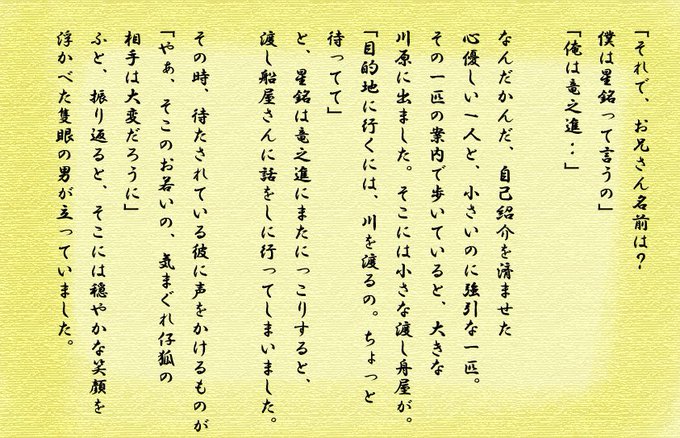 「それで、お兄さん名前は？
僕は星銘って言うの」
「俺は竜之進‥」
なんだかんだ、自己紹介を済ませた
心優しい一人と、小さいのに強引な一匹。
その一匹の案内で歩いていると、大きな
川原に出ました。そこには小さな渡し舟屋が。
「目的地に行くには、川を渡るの。ちょっと
待ってて」
と、星銘は竜之進にまたにっこりすると、
渡し船屋さんに話をしに行ってしまいました。
その時、待たされている彼に声をかけるものが
「やぁ、そこのお若いの、気まぐれ仔狐の
相手は大変だろうに」
ふと、振り返ると、そこには穏やかな笑顔を
浮かべた隻眼の男が立っていました。